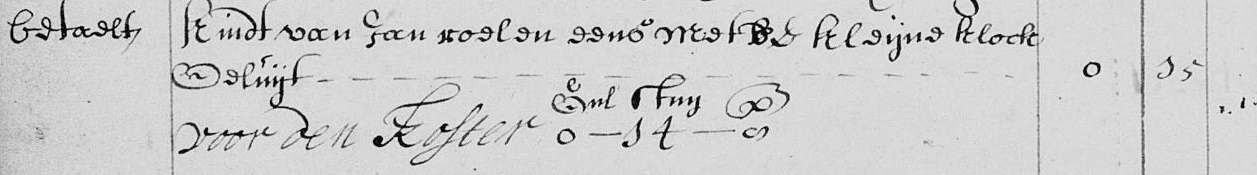 betaelt kindt van Jan roelen eens met de kleijne klock
Geluijt - - - - - - - - - - - 0 15
Gul stuy
voor den Koster 0 — 14 — 8